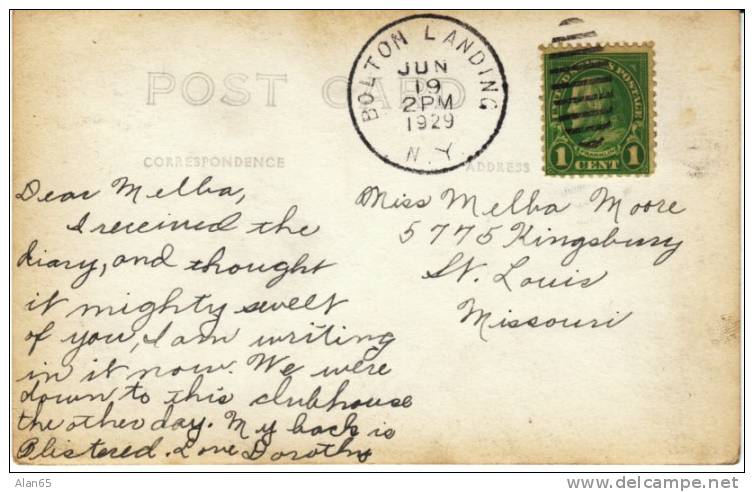 POST CARD
BOLTON LANDING
JUN
19
2PM
1929
N.Y.
UNITED STATES POSTAGE
FRANKLIN
1 CENT 1
CORRESPONDENCE
ADDRESS
Dear Melba,
I received the
diary, and thought
it mighty sweet
of you, I am writing
in it now. We were
down to this clubhouse
the other day. My back is
Blistered. Love Dorothy
Miss Melba Moore
5775 Kingsbury
St. Louis
Missouri
Alan65
delcampe.net